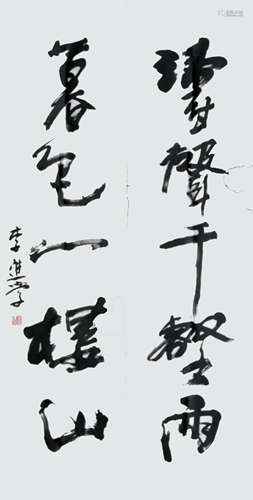 濤聲千壑雨
暮色一樓山
李進學